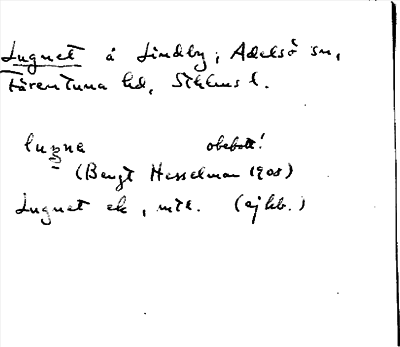 Lugnet å Lindby, Adelsö sn,
Färentuna hd, Sthlms l.
lugna obebott!
(Bengt Hesselman 1908)
Lugnet ek, mtl. (ej kb.)